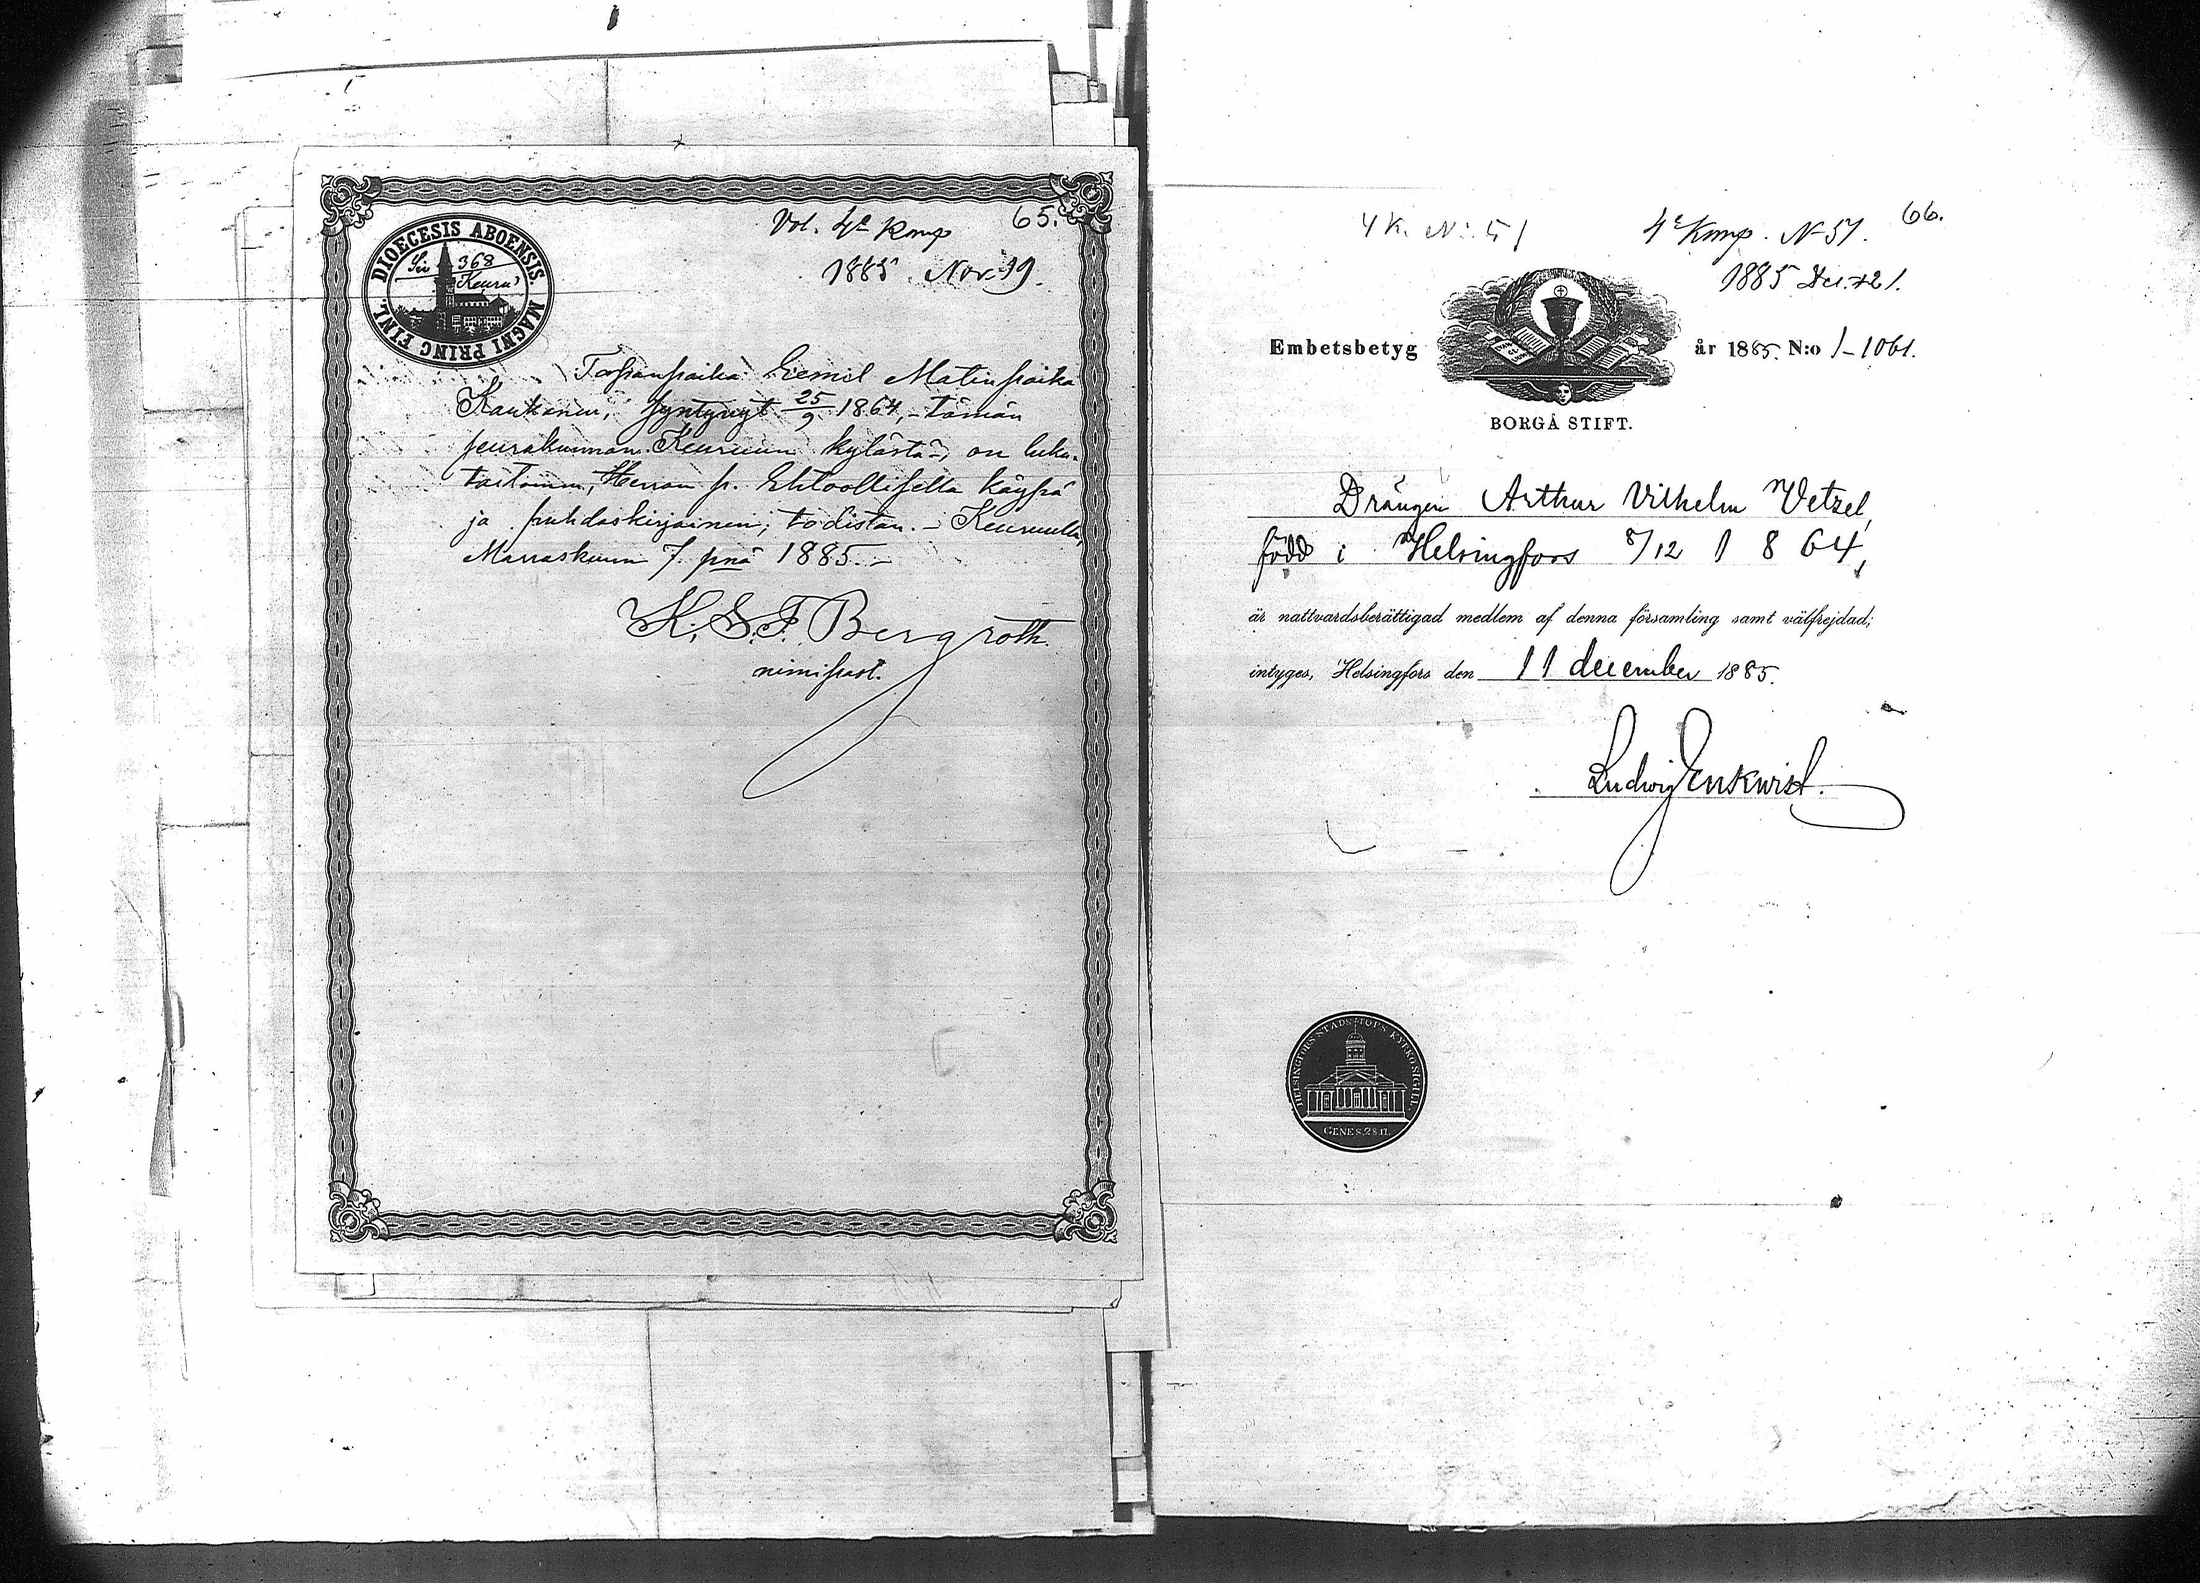 65.
Vol. 4e Komp
1885. Nov. 19.
DIOECESIS ABOENSIS. MAGNI PRINC FINL.
Siv 368
Keuru
Talonpoika Eemil Matinpoika
Kautonen, syntynyt 25/9 1864, tämän
seurakunnan Keuruun kylästä, on luku-
taitoinen, Herran p. Ehtoollisella käypä
ja puhdaskirjainen; todistan. – Keuruulla,
Marraskuun 7. pnä 1885. –
K. S. F. Bergroth.
nimipast.
66.
4 K. No 51
4e Komp. No 51.
1885 Dec. 21.
Embetsbetyg år 1885. N:o 1–1061.
BORGÅ STIFT.
Drängen Arthur Vilhelm Wetzel,
född i Helsingfors 8/12 1864,
är nattvardsberättigad medlem af denna församling samt välfrejdad;
intyges, Helsingfors den 11 december 1885.
Ludvig Jenskwist.
HELSINGFORS STADS KYRKOSIGILL.
GENES. 28. 17.